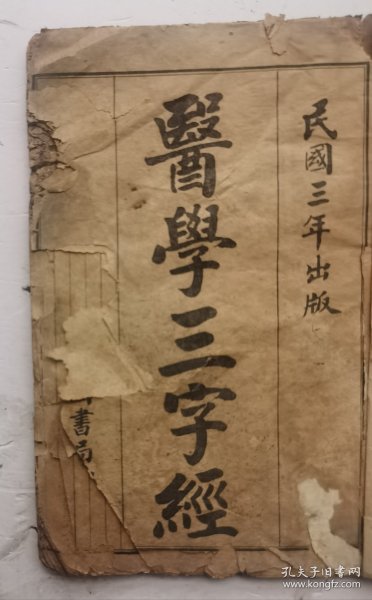 民國三年出版
醫學三字經
書局
孔夫子旧书网
www.kongfz.com